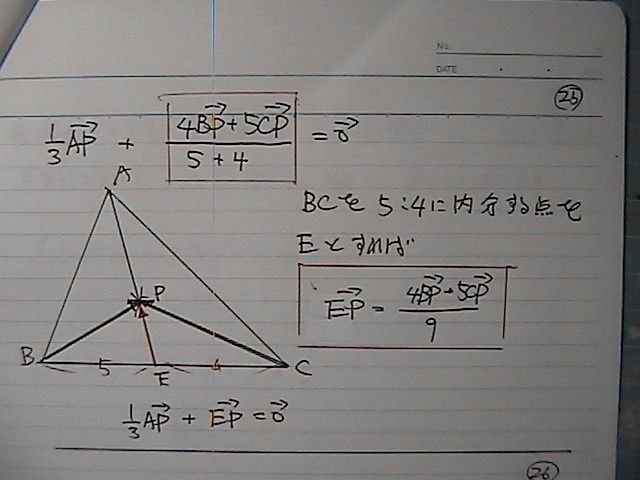 No.
DATE
25
1/3 AP→ + (4BP→+5CP→)/(5+4) = 0→
A
BCを 5:4に内分する点を
Eとすれば
EP→ = (4BP→+5CP→)/9
P
B 5 E 4 C
1/3 AP→ + EP→ = 0→
26